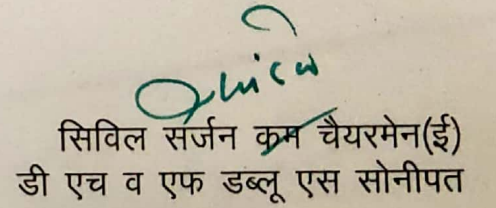 सिविल सर्जन कम चैयरमेन(ई)
डी एच व एफ डब्लू एस सोनीपत